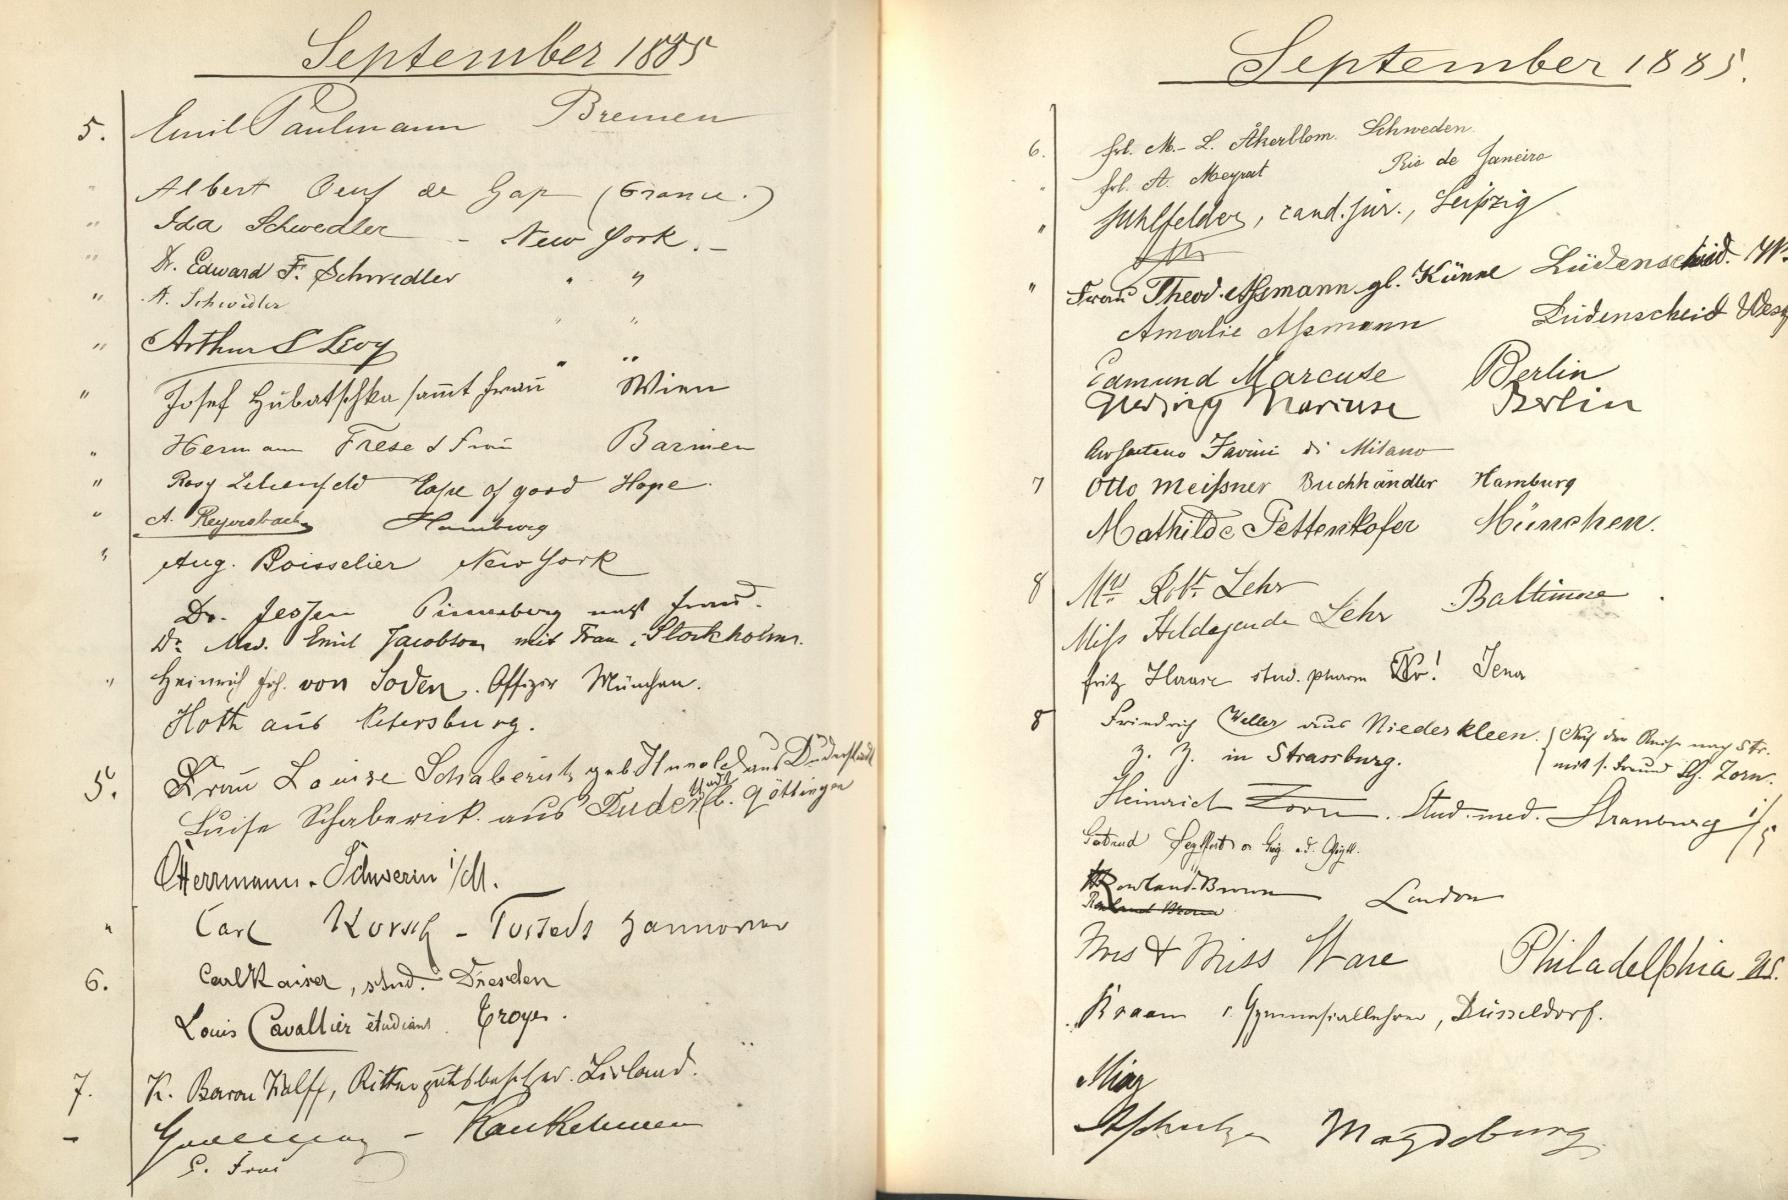 September 1885
5. Emil Paulmann Bremen
" Albert Oeuf de Gap (France.)
" Ida Schwedler - New York. -
" Dr. Edward F. Schwedler " "
" A. Schwedler " "
" Arthur S Levy " "
" Josef Hubatschka samt Frau Wien
" Hermann Frese & Frau Barmen
" Rosy Lilienfeld Cape of good Hope.
" A. Reyersbach Hamburg
" Aug. Boisselier New York
Dr. Jessen Pinneberg nebst Frau.
Dr. Med. Emil Jacobson mit Frau, Stockholm.
" Heinrich Joh. von Soden. Offizier München.
Hoth aus Petersburg.
5. Frau Louise Schaberick geb Hunold aus Duderstadt
Luise Schaberick. aus Duderstadt b. Göttingen
Herrmann. Schwerin i/M.
" Carl Korsch - Hannover
6. Carl Kaiser, stud. Dresden
Louis Cavallier étudiant Troyes.
7. K. Baron Wolff, Rittergutsbesitzer. Livland.
-
& Frau
September 1885.
6. Frl. M.-L. Åkerblom. Schweden.
" Frl. A. Meyrat Rio de Janeiro
" Uhlfelder, cand. jur., Leipzig
" Frau Theod. Assmann gl. Künne Lüdenscheid. W.
Amalie Assmann Lüdenscheid West
Edmund Marcuse Berlin
Hedwig Marcuse Berlin
Gaetano Favini di Milano
7 Otto Meißner Buchhändler Hamburg
Mathilde Pettenkofer München.
8 Mrs Robt Lehr
Miss Hildegarde Lehr Baltimore
Fritz stud. pharm Jena
8 Friedrich Weller aus Niederkleen. (Auf der Reise nach Str.
z. Z. in Strassburg. mit s. Freund Zorn.
Heinrich Zorn. Stud. med. Strassburg i/E
Rowland-Brown London
Rowland Brown
Mrs & Miss Ware Philadelphia US.
Braam Gymnasiallehrer, Düsseldorf.
Schulze Magdeburg